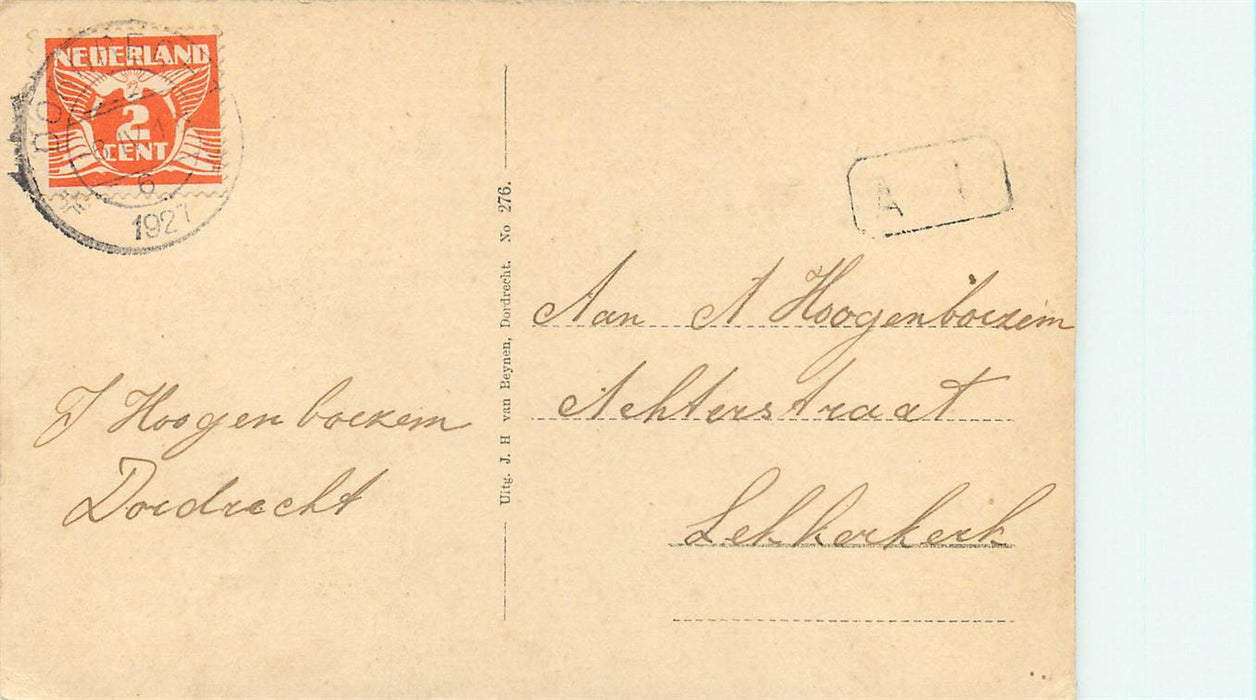 NEDERLAND
2
CENT
6
1927
A
J Hoogenboezem
Dordrecht
Uitg. J. H van Beynen, Dordrecht. No 276.
Aan A Hoogenboezem
Achterstraat
Lekkerkerk